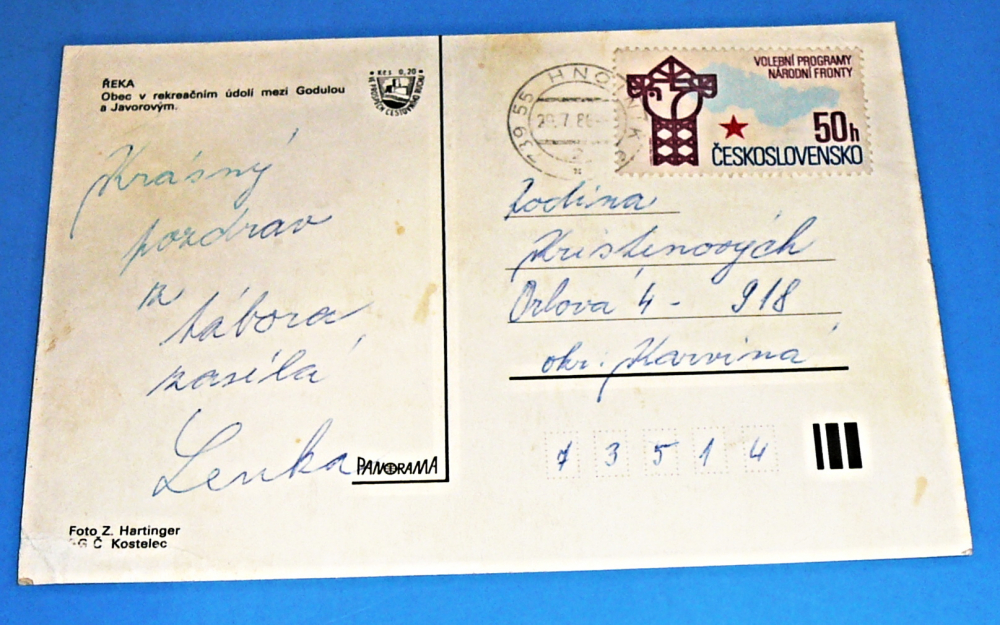 ŘEKA
Obec v rekreačním údolí mezi Godulou
a Javorovým.
Kčs 0,20
VE PROSPĚCH CESTOVNÍHO RUCHU
Krásný
pozdrav
z
tábora
zasílá
Lenka
PANORAMA
Foto Z. Hartinger
G Č Kostelec
739 55 HNOJNÍK
29.7.86
VOLEBNÍ PROGRAMY
NÁRODNÍ FRONTY
50h
ČESKOSLOVENSKO
Rodina
Kristenových
Orlová 4 - 918
okr. Karviná
7 3 5 1 4